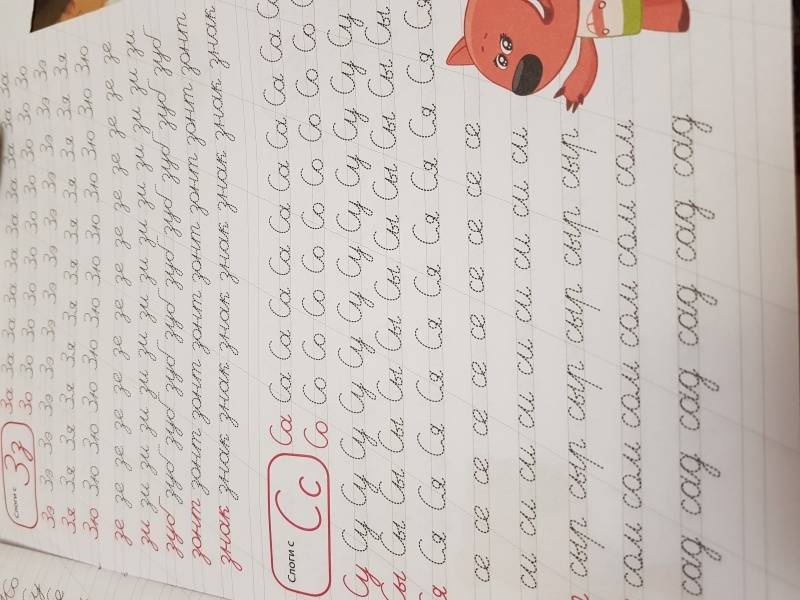 Слоги с Зз
За За За За За За За За За За
Зо Зо Зо Зо Зо Зо Зо Зо Зо Зо
Зэ Зэ Зэ Зэ Зэ Зэ Зэ Зэ Зэ Зэ Зэ Зэ Зэ
Зя Зя Зя Зя Зя Зя Зя Зя Зя Зя Зя Зя Зя
Зю Зю Зю Зю Зю Зю Зю Зю Зю Зю Зю Зю Зю
зе зе зе зе зе зе зе зе зе зе зе зе зе зе
зи зи зи зи зи зи зи зи зи зи зи зи зи зи
зуб зуб зуб зуб зуб зуб зуб зуб зуб зуб зуб
зонт зонт зонт зонт зонт зонт зонт зонт зонт
знак знак знак знак знак знак знак знак знак
Слоги с Сс
Са Са Са Са Са Са Са Са Са Са Са
Со Со Со Со Со Со Со Со Со Со Со
Су Су Су Су Су Су Су Су Су Су Су Су Су
Сы Сы Сы Сы Сы Сы Сы Сы Сы Сы Сы Сы Сы
Ся Ся Ся Ся Ся Ся Ся Ся Ся Ся Ся Ся
се се се се се се се се се се се
си си си си си си си си си си си
сыр сыр сыр сыр сыр сыр сыр
сом сом сом сом сом сом сом
сад сад сад сад сад сад сад